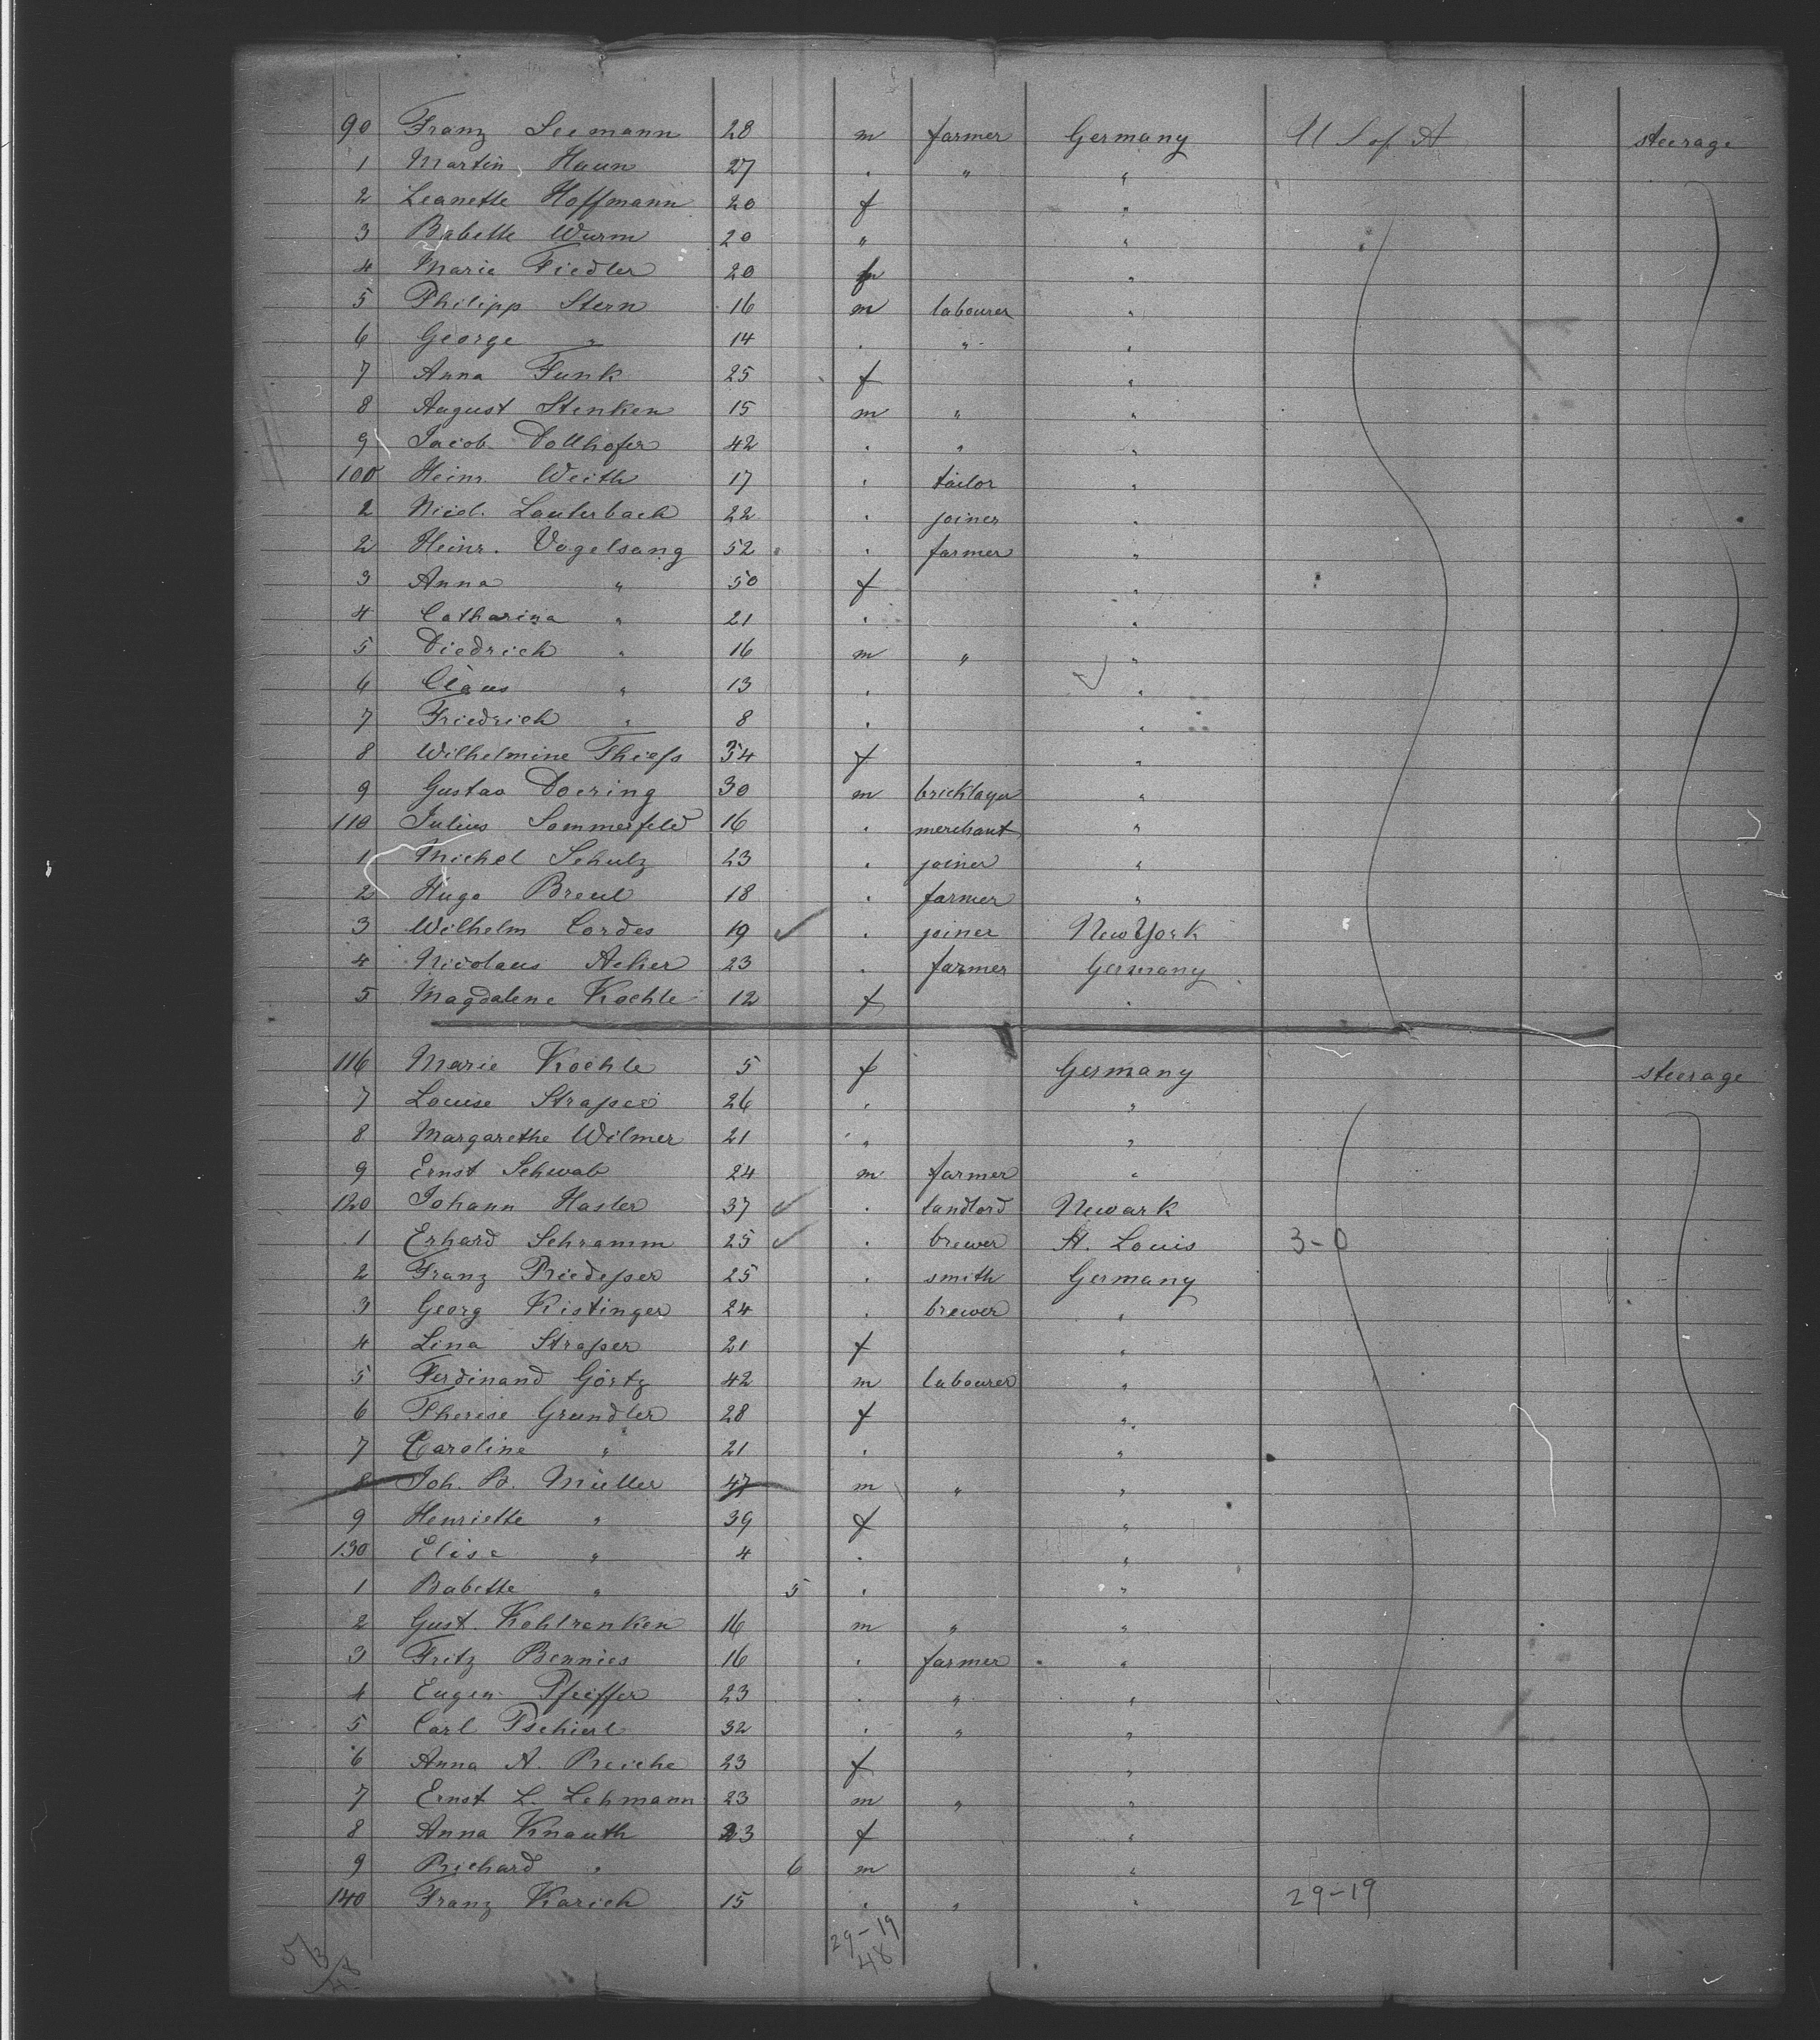 90 Franz Seemann 28 m farmer Germany U S of A steerage
1 Martin Haun 27 " " "
2 Leanette Hoffmann 20 f "
3 Babette Wurm 20 " "
4 Marie Fiedler 20 f "
5 Philipp Stern 16 m labourer "
6 George " 14 " " "
7 Anna Funk 25 f "
8 August Stenken 15 m " "
9 Jacob Dollhofer 42 " " "
100 Heinr. Weith 17 " tailor "
2 Nicol. Lauterbach 22 " joiner "
2 Heinr. Vogelsang 52 " farmer "
3 Anna " 50 f "
4 Catharina " 21 " "
5 Diedrich " 16 m " "
6 Claus " 13 " "
7 Friedrich " 8 " "
8 Wilhelmine Thiess 34 f "
9 Gustav Doering 30 m bricklayer "
110 Julius Sommerfeld 16 " merchant "
1 Michel Schulz 23 " joiner "
2 Hugo Breul 18 " farmer "
3 Wilhelm Cordes 19 ✓ " joiner New York
4 Nicolaus Acker 23 " farmer Germany
5 Magdalene Koehle 12 f "
116 Marie Koehle 5 f Germany steerage
7 Louise 26 " "
8 Margarethe Wilmer 21 " "
9 Ernst Schwab 24 m farmer "
120 Johann Hasler 37 ✓ " landlord Newark
1 Erhard Schramm 25 ✓ " brewer St. Louis 3-0
2 Franz 25 " smith Germany
3 Georg Kistinger 24 " brewer "
4 Lina Strasser 21 f "
5 Ferdinand Görtz 42 m labourer "
6 Therese Grundler 28 f "
7 Caroline " 21 " "
8 Joh. B. Müller 47 m " "
9 Henriette " 39 f "
130 Elise " 4 " "
1 Babette " 5 " "
2 Gust. Kohlrenken 16 m " "
3 Fritz Bennies 16 " farmer "
4 Eugen Pfeiffer 23 " " "
5 Carl Pschierl 32 " " "
6 Anna A. Reiche 23 f "
7 Ernst L. Lehmann 23 m " "
8 Anna Knauth 23 f "
9 Richard " 6 m "
140 Franz Karich 15 " " " 29-19
29-19
48